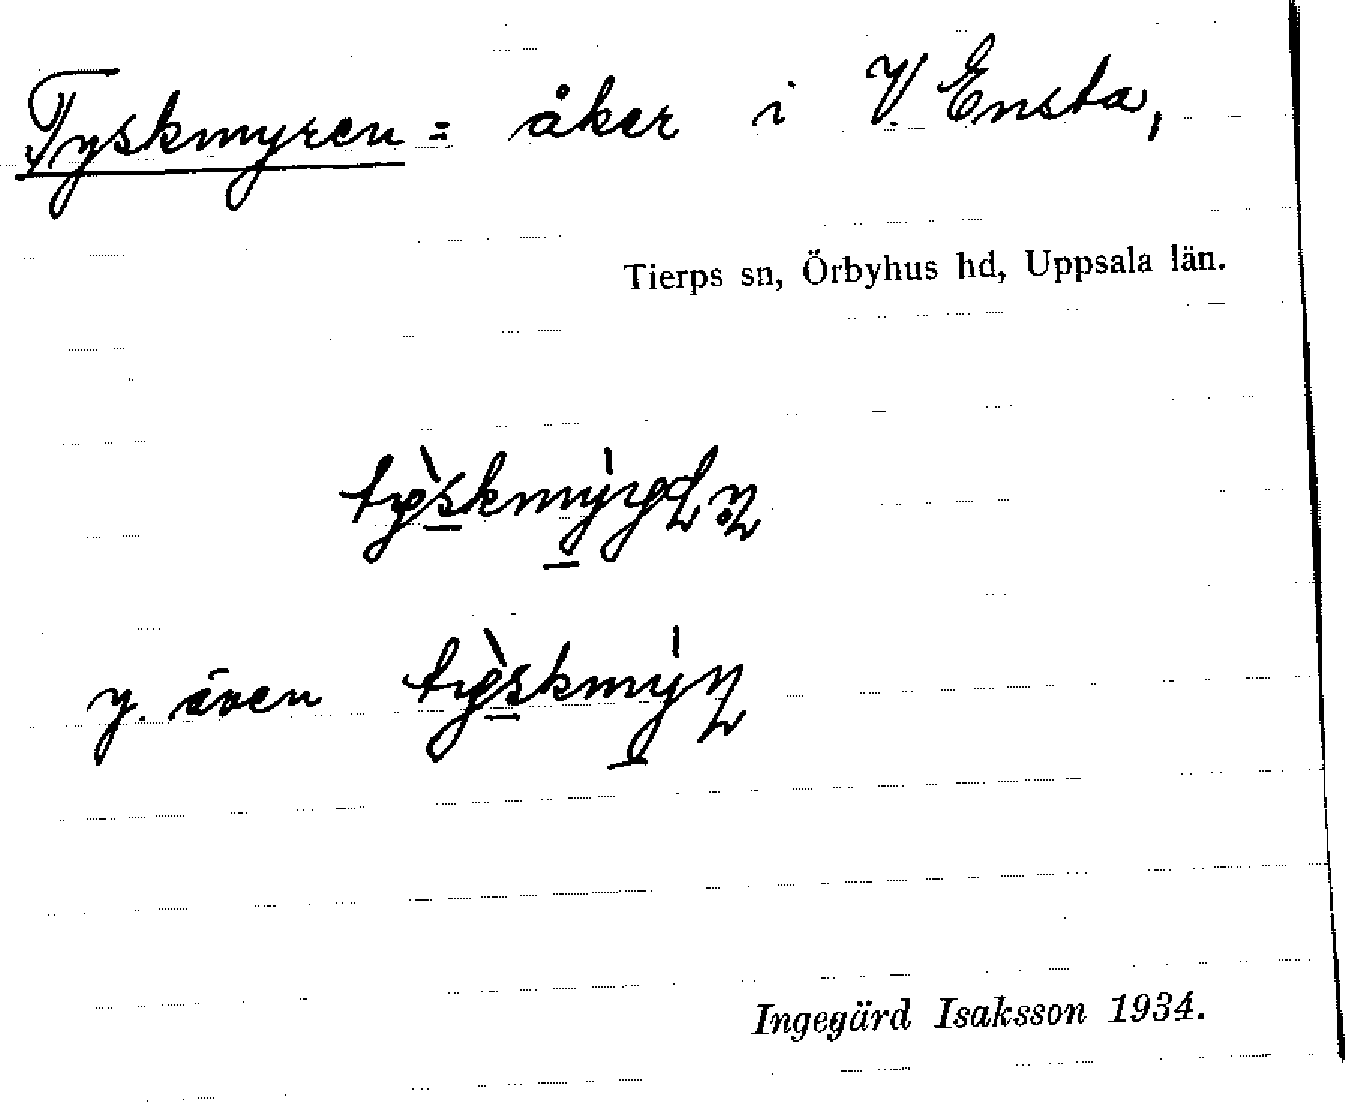 Tyskmyren = åker i V Ensta,
Tierps sn, Örbyhus hd, Uppsala län.
y. även
Ingegärd Isaksson 1934.